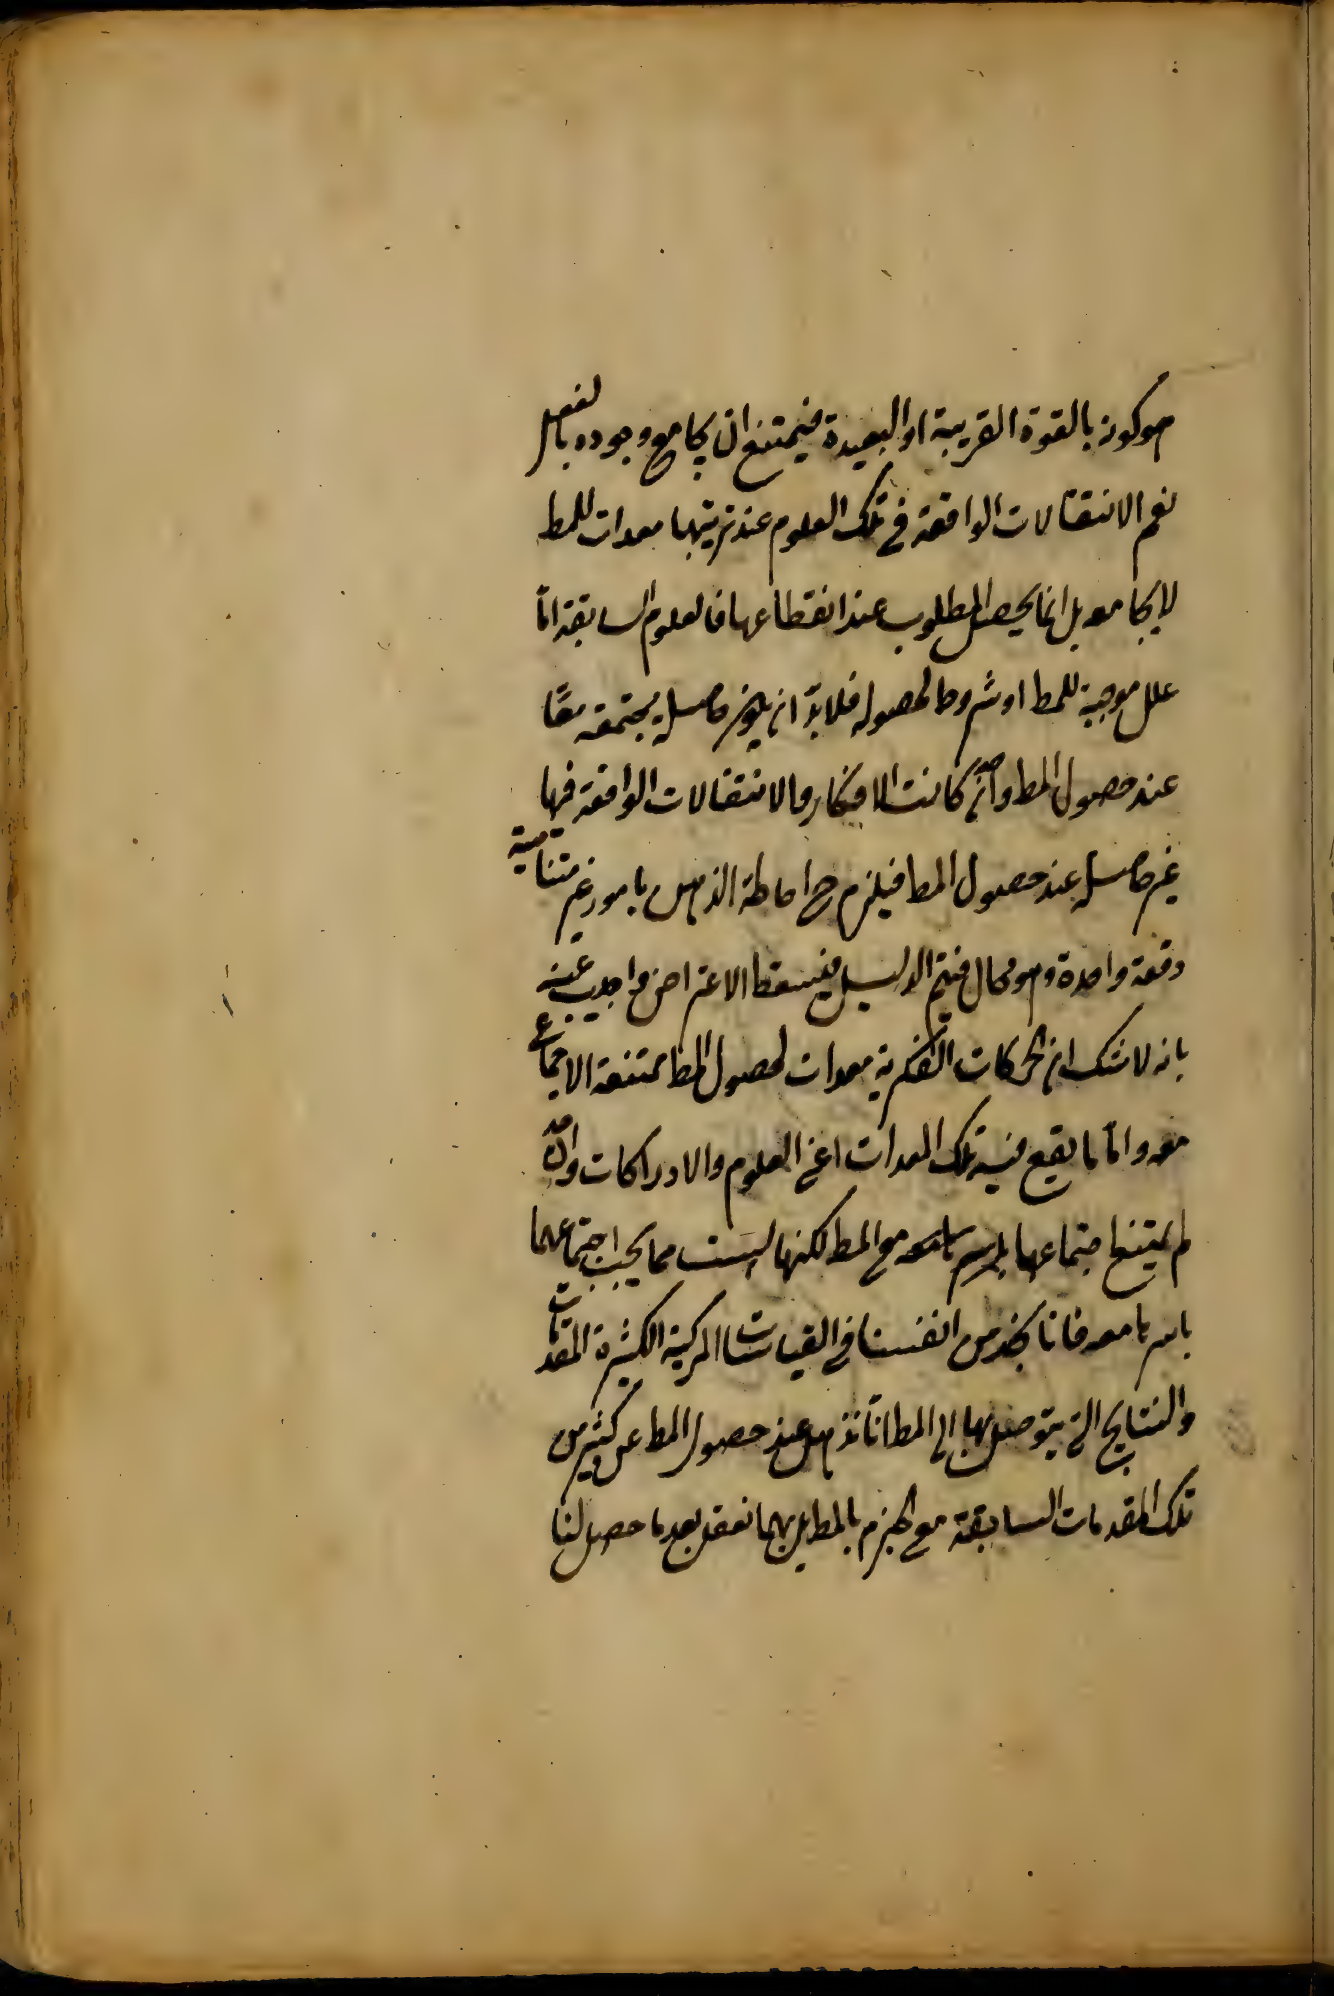 هو كونه بالقوة القريبة او البعيدة فيمتنع ان يجامع وجوده بالفعل
نعم الانتقالات الواقعة في تلك العلوم عند ترتيبها معدات للمط
لا يجامعه بل انما يحصل المطلوب عند انقطاعها فالعلوم السابقة اما
علل موجبة للمط او شروط لحصوله فلا بدّ ان يكون حاصلة مجتمعة معًا
عند حصول المط وان كانت الافكار والانتقالات الواقعة فيها
غير حاصلة عند حصول المط فيلزم ح احاطة الذهن بامور غير متناهية
دفعة واحدة وهو محال فيتم الدليل فيسقط الاعتراض واجيب عنه
بانه لا شك ان الحركات الفكرية معدات لحصول المط ممتنعة الاجتماع
معه واما ما يقع فيه تلك المعدات اعني العلوم والادراكات وان
لم يمتنع اجتماعها مع المط لكنها ليست مما يجب اجتماعها
باسرها معه فانا نجد من انفسنا في القياسات المركبة الكثيرة المقدمات
والنتايج التي يتوصل بها الى المط انا نذهل عند حصول المط عن كثير من
تلك المقدمات السابقة مع الجزم بالمط بل ربما نعقل بعد ما حصل لنا